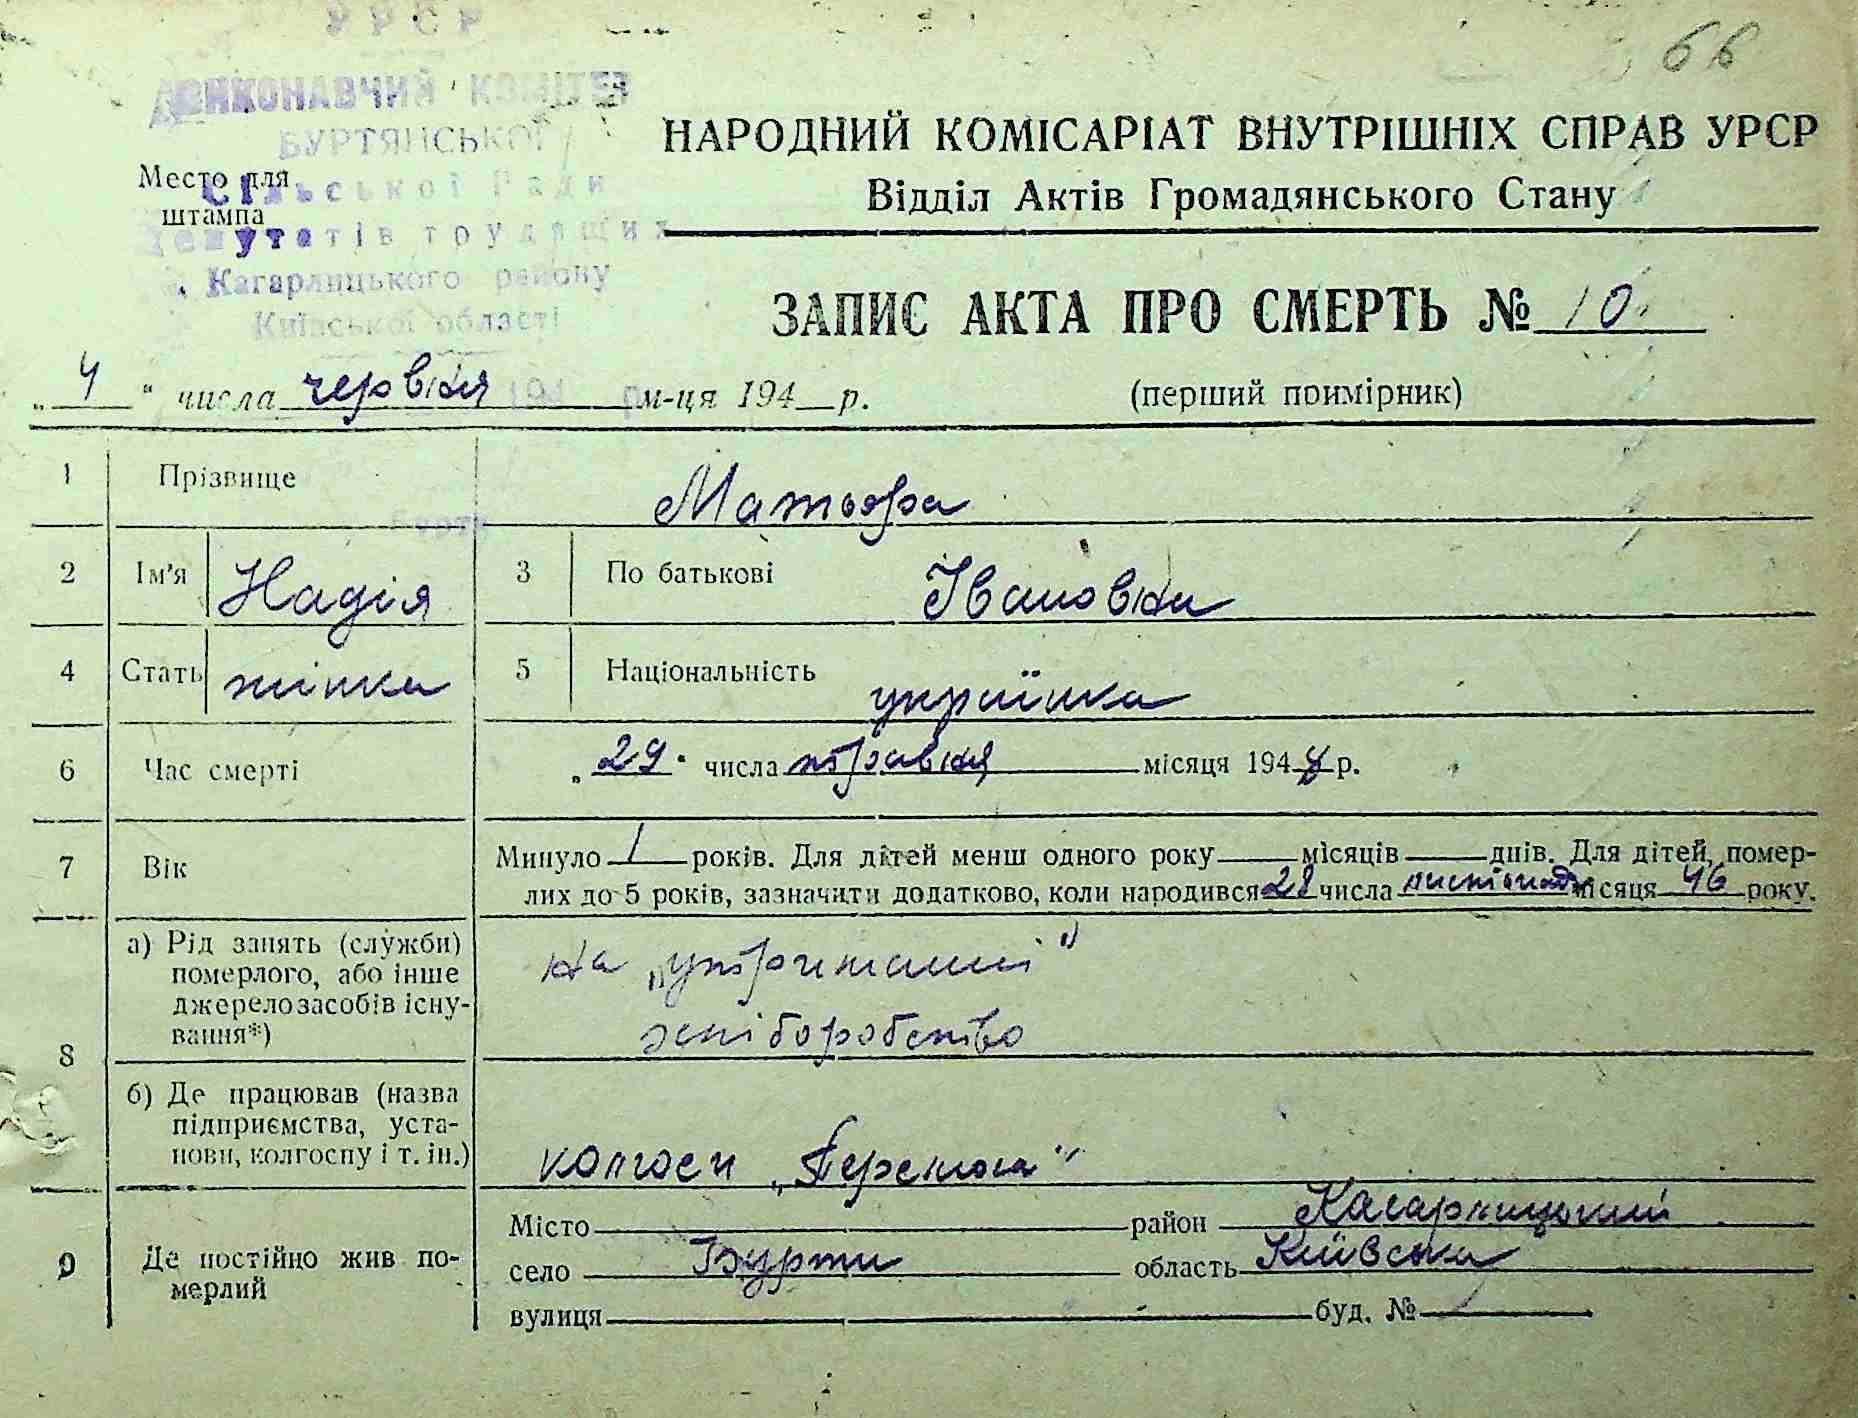 66
УРСР
ВИКОНАВЧИЙ КОМІТЕТ
БУРТЯНСЬКОЇ
Сільської Ради
Депутатів трудящих
Кагарлицького району
Київської області
Место для
штампа
НАРОДНИЙ КОМІСАРІАТ ВНУТРІШНІХ СПРАВ УРСР
Відділ Актів Громадянського Стану
ЗАПИС АКТА ПРО СМЕРТЬ № 10
(перший примірник)
„ 4 " числа червня м-ця 194 р.
1 Прізвище Матьора
2 Ім'я Надія 3 По батькові Івановна
4 Стать жінка 5 Національність українка
6 Час смерті „ 29 " числа травня місяця 194 р.
7 Вік Минуло 1 років. Для дітей менш одного року місяців днів. Для дітей, помер-
лих до 5 років, зазначити додатково, коли народився 28 числа листопада місяця 46 року.
8 а) Рід занять (служби)
померлого, або інше
джерело засобів існу-
вання*)
на „утриманні"
хліборобство
б) Де працював (назва
підприємства, уста-
нови, колгоспу і т. ін.)
колгосп „Перемога"
9 Де постійно жив по-
мерлий
Місто район Кагарлицький
село Бурти область Київська
вулиця буд. №